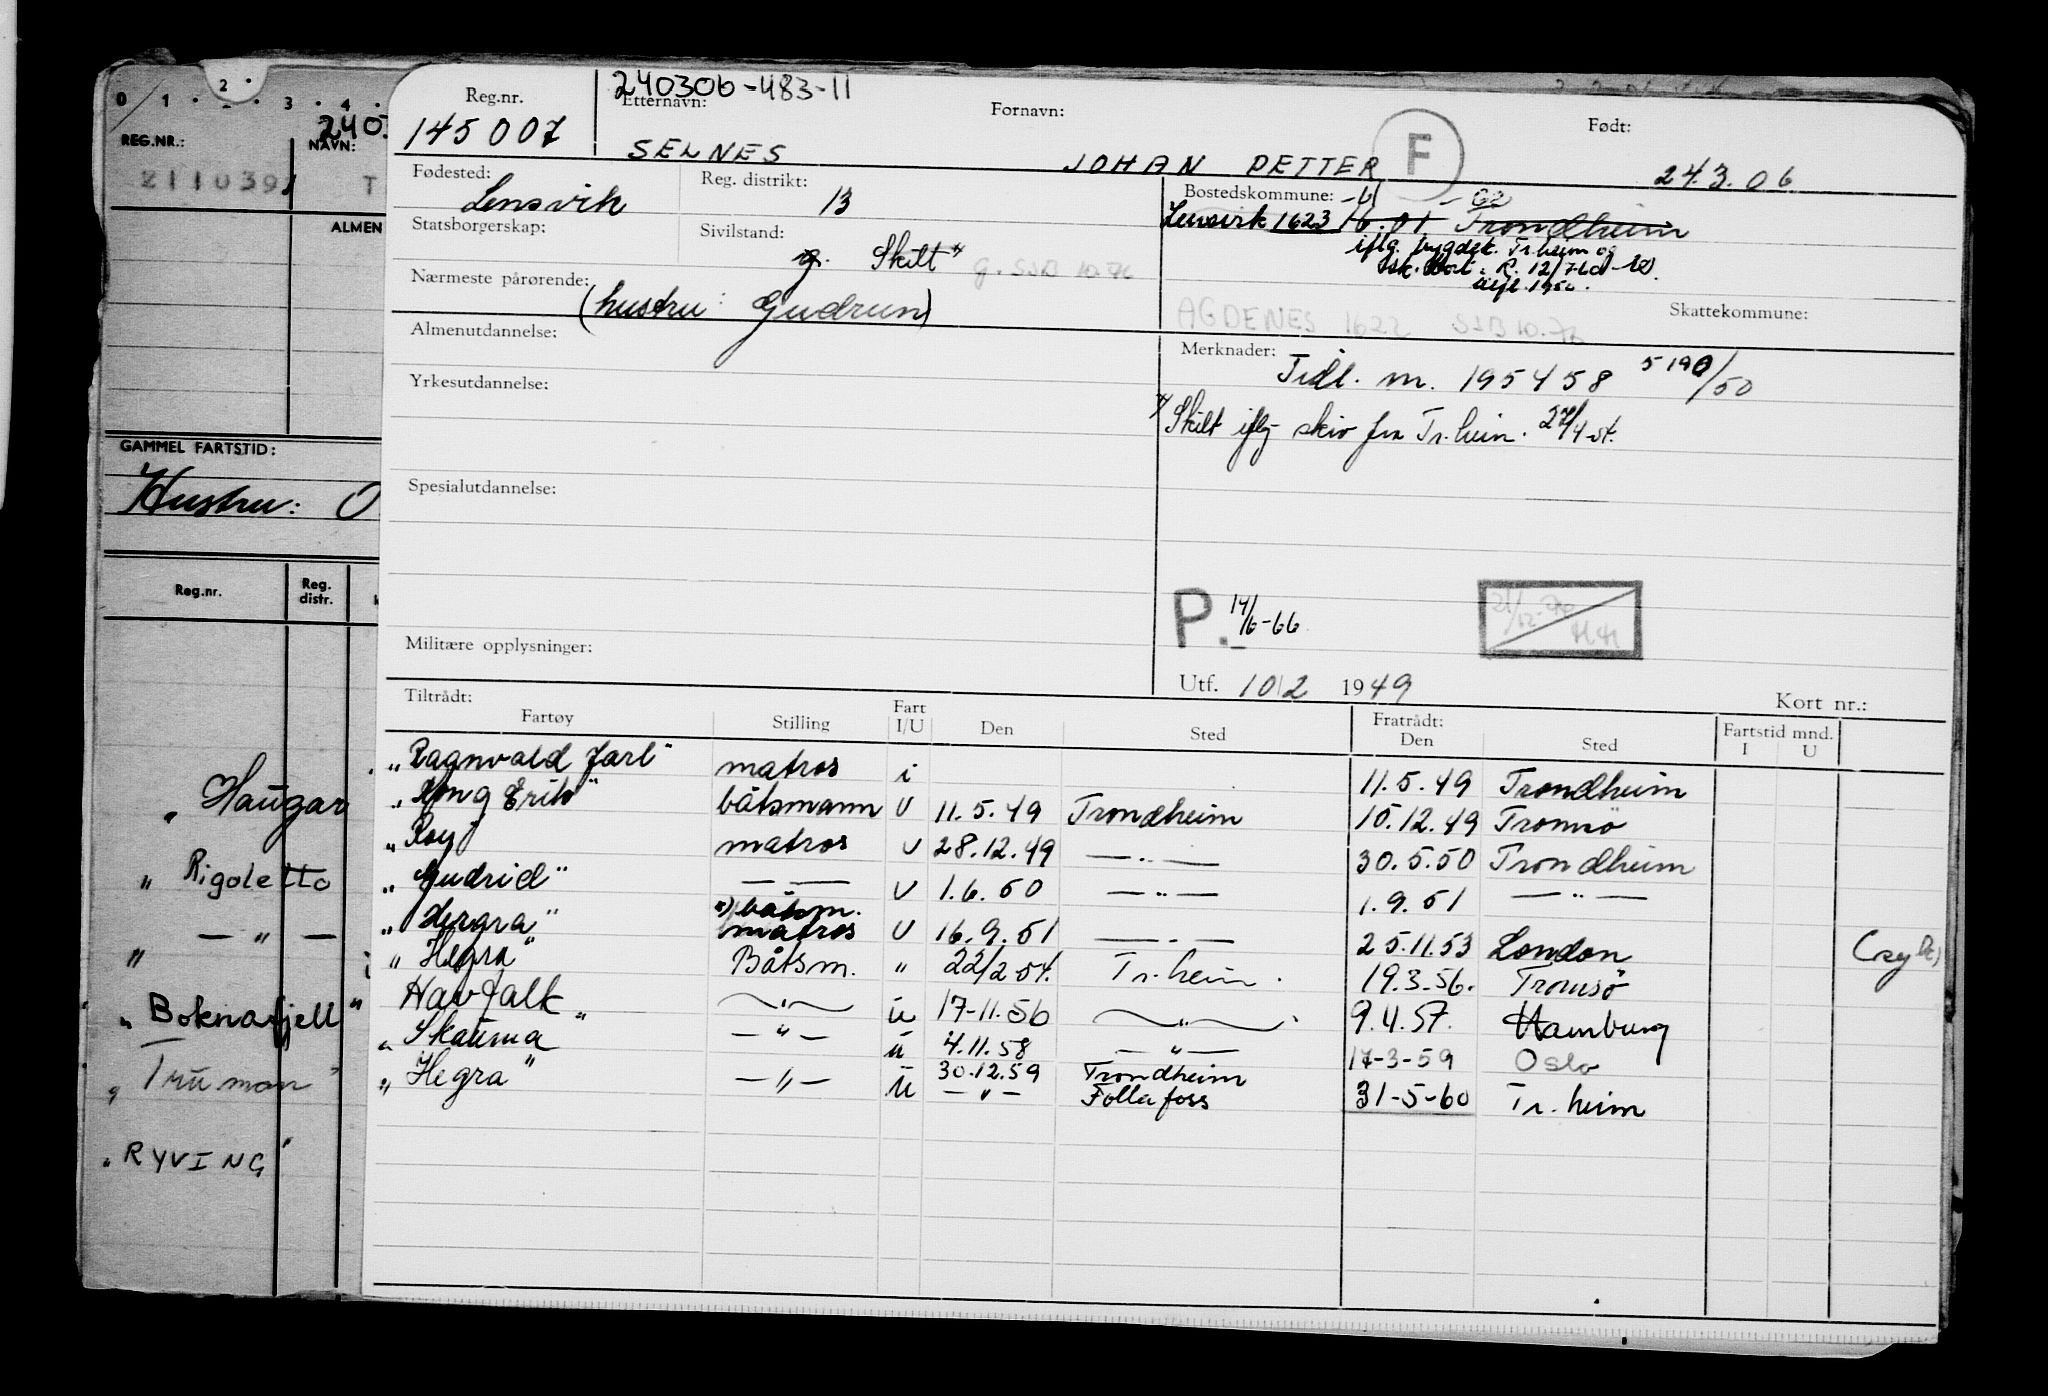 0 1 2 3 4
REG.NR.:
NAVN:
211039
T
ALMEN
GAMMEL FARTSTID:
Hustru: O
Reg.nr.
Reg. distr.
„ Haugar
„ Rigoletto
„ — „ —
„ Boknafjell "
„ Truman "
„ RYVING "
240306-483-11
Reg.nr.
Etternavn:
Fornavn:
Født:
145007
SELNES
JOHAN PETTER
F
24.3.06
Fødested:
Lensvik
Reg. distrikt:
13
Bostedskommune:
Lensvik 1623 16.01 Trondheim
Statsborgerskap:
Sivilstand:
g. Skilt x)
g. SSB 10.72
iflg. Tr.heim og
1950.
Nærmeste pårørende:
(hustru: Gudrun)
AGDENES 1622 SSB 10.72
Skattekommune:
Almenutdannelse:
Merknader:
Tidl. m. 195458 5190/50
Yrkesutdannelse:
x) Skilt iflg skiv fra Tr.heim. 27/4-51.
Spesialutdannelse:
P. 14/6-66
Militære opplysninger:
Utf. 10/2 1949
Kort nr.:
Tiltrådt:
Fratrådt:
Fartstid mnd.
Fartøy Stilling Fart I/U Den Sted Den Sted I U
„Ragnvald Jarl" matros i 11.5.49 Trondheim
„Kong Erik" båtsmann U 11.5.49 Trondheim 10.12.49 Tromsø
„Roy" matros U 28.12.49 — „ — 30.5.50 Trondheim
„Gudrid" — — U 1.6.50 — „ — 1.9.51 — „ —
x) båtsm.
„Hergra" matros U 16.9.51 — „ — 25.11.53 London
„Hegra" Båtsm. „ 22/2-54. Tr.heim. 19.3-56. Tromsø
Havfalk „ — „ — u 17-11.56 — „ — 9.4.57. Hamburg
„Skauma — „ — u 4.11.58 — „ — 17-3-59 Oslo
„Hegra" — „ — u 30.12.59 Trondheim
— „ — Follafoss 31-5-60 Tr.heim